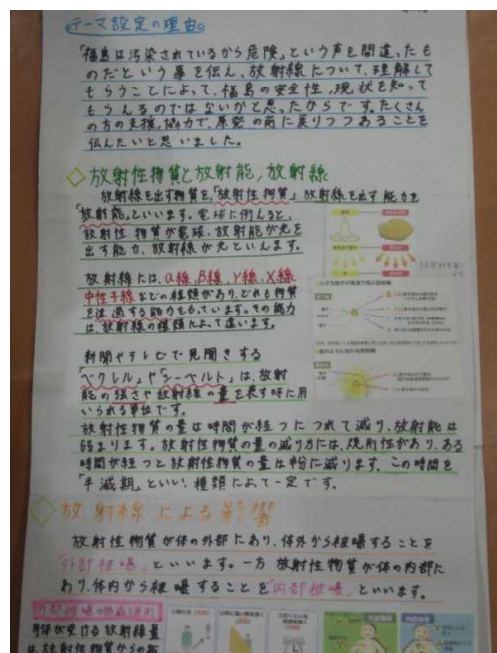 テーマ設定の理由
「福島は汚染されているから危険」という声を間違ったも
のだという事を伝え、放射線について、理解して
もらうことによって、福島の安全性、現状を知って
もらえるのではないかと思ったからです。たくさん
の方の支援、協力で、原発の前に戻りつつあることを
伝えたいと思いました。
放射性物質と放射能,放射線
放射線を出す物質を、「放射性物質」放射線を出す能力を
「放射能」といいます。電球に例えると、
放射性物質が電球、放射能が光を
出す能力、放射線が光といえます。
放射線には、α線、β線、γ線、X線
中性子線などの種類があり、どれも物質
を透過する能力をもっています。その能力
は、放射線の種類によって違います。
新聞やテレビで見聞きする
「ベクレル」や「シーベルト」は、放射
能の強さや放射線の量を表す時に用
いられる単位です。
放射性物質の量は時間が経つにつれて減り、放射能は
弱まります。放射性物質の量の減り方には、規則性があり、ある
時間が経つと放射性物質の量は半分に減ります。この時間を
「半減期」といい、種類によって一定です。
放射線による影響
放射性物質が体の外部にあり、体外から被曝することを
「外部被曝」といいます。一方 放射性物質が体の内部に
あり、体内から被曝することを「内部被曝」といいます。
外部被曝の低減三原則
身体が受ける放射線量
は、放射性物質からの距